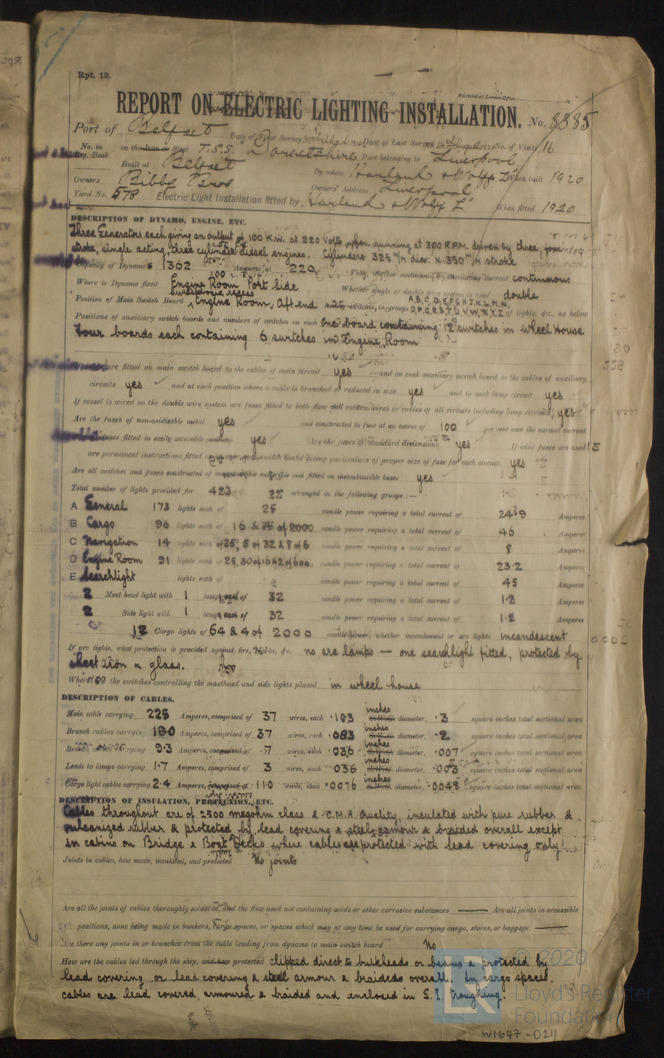 Rpt. 13.
REPORT ON ELECTRIC LIGHTING INSTALLATION. No. 8885
Port of Belfast Date of First Survey Date of Last Survey No. of Visits 16
No. in Reg. Book on the Steel T.S.S. Dorsetshire Port belonging to Liverpool
Built at Belfast By whom Harland & Wolff Ld When built 1920
Owners Bibby Bros Owners' Address Liverpool
Yard No. 578 Electric Light Installation fitted by Harland & Wolff Ld When fitted 1920
DESCRIPTION OF DYNAMO, ENGINE, ETC.
Three Generators each giving an output of 100 K.W. at 220 Volts when running at 300 R.P.M. driven by three, four
stroke, single acting, three cylinder diesel engines. Cylinders 325 m/m diar. x 350 m/m stroke
Capacity of Dynamos 1362 Amperes at 220 continuous
Where is Dynamo fixed Engine Room Port Side Whether single or double wire system is used double
Position of Main Switch Board Engine Room, Aft end 25 switches, to groups A,B,C,D,E,F,G,H,J,K,L,M,N,
O,P,Q,R,S,T,U,V,W,X,Y,Z of lights, &c., as below
Positions of auxiliary switch boards and numbers of switches on each One board containing 12 switches in wheel House
Four boards each containing 6 switches in Engine Room
are fitted on main switch board to the cables of main circuit yes and on each auxiliary switch board to the cables of auxiliary
circuits yes and at each position where a cable is branched or reduced in size yes and to each lamp circuit yes
If vessel is wired on the double wire system are fuses fitted to both flow and return wires or cables of all circuits including lamp circuits yes
Are the fuses of non-oxidizable metal yes and constructed to fuse at an excess of 100 per cent over the normal current
fuses fitted in easily accessible positions yes Are the fuses of standard dimensions yes If wire fuses are used
are permanent instructions fitted giving particulars of proper size of fuse for each circuit yes
Are all switches and fuses constructed of incombustible materials and fitted on incombustible bases yes
Total number of lights provided for 423 25 arranged in the following groups :—
A General 173 lights each of 25 candle power requiring a total current of 24.9 Amperes
B Cargo 96 lights each of 16 & of 2000 candle power requiring a total current of 46 Amperes
C Navigation 14 lights each of 25, 5 of 32 & 8 of 6 candle power requiring a total current of 8 Amperes
D Engine Room 91 lights each of 25, 30 of 16 & 2 of 600 candle power requiring a total current of 23.2 Amperes
E Searchlight lights each of candle power requiring a total current of 45 Amperes
2 Mast head light with 1 lamp each of 32 candle power requiring a total current of 1.2 Amperes
2 Side light with 1 lamp each of 32 candle power requiring a total current of 1.2 Amperes
12 Cargo lights of 64 & 4 of 2000 candle power, whether incandescent or arc lights incandescent
If arc lights, what protection is provided against fire, sparks, &c. no arc lamps — one searchlight fitted, protected by
sheet iron & glass.
Where are the switches controlling the masthead and side lights placed in wheel house
DESCRIPTION OF CABLES.
Main cable carrying 225 Amperes, comprised of 37 wires, each .103 inches diameter, .3 square inches total sectional area
Branch cables carrying 190 Amperes, comprised of 37 wires, each .083 inches diameter, .2 square inches total sectional area
Branch cables carrying 9.3 Amperes, comprised of 7 wires, each .036 inches diameter, .007 square inches total sectional area
Leads to lamps carrying 1.7 Amperes, comprised of 3 wires, each .036 inches diameter, .003 square inches total sectional area
Cargo light cables carrying 2.4 Amperes, comprised of 110 wires, each .0076 inches diameter, .0048 square inches total sectional area
DESCRIPTION OF INSULATION, PROTECTION, ETC.
Cables throughout are of 2500 megohm class & C.M.A. Quality, insulated with pure rubber &
vulcanized rubber & protected by lead covering & steel armour & braided overall except
in cabins on Bridge & Boat Decks where cables are protected with lead covering only
Joints in cables, how made, insulated, and protected No joints
Are all the joints of cables thoroughly soldered, and the flux used not containing acids or other corrosive substances — Are all joints in accessible
positions, none being made in bunkers, cargo spaces, or spaces which may at any time be used for carrying cargo, stores, or baggage —
Are there any joints in or branches from the cable leading from dynamo to main switch board No
How are the cables led through the ship, and how protected clipped direct to bulkheads or beams & protected by
lead covering or lead covering & steel armour & braided overall. In cargo spaces
cables are lead covered, armoured & braided and enclosed in S.I. troughing.
© 2020
LR Lloyd's Register
Foundation
W1647-0211